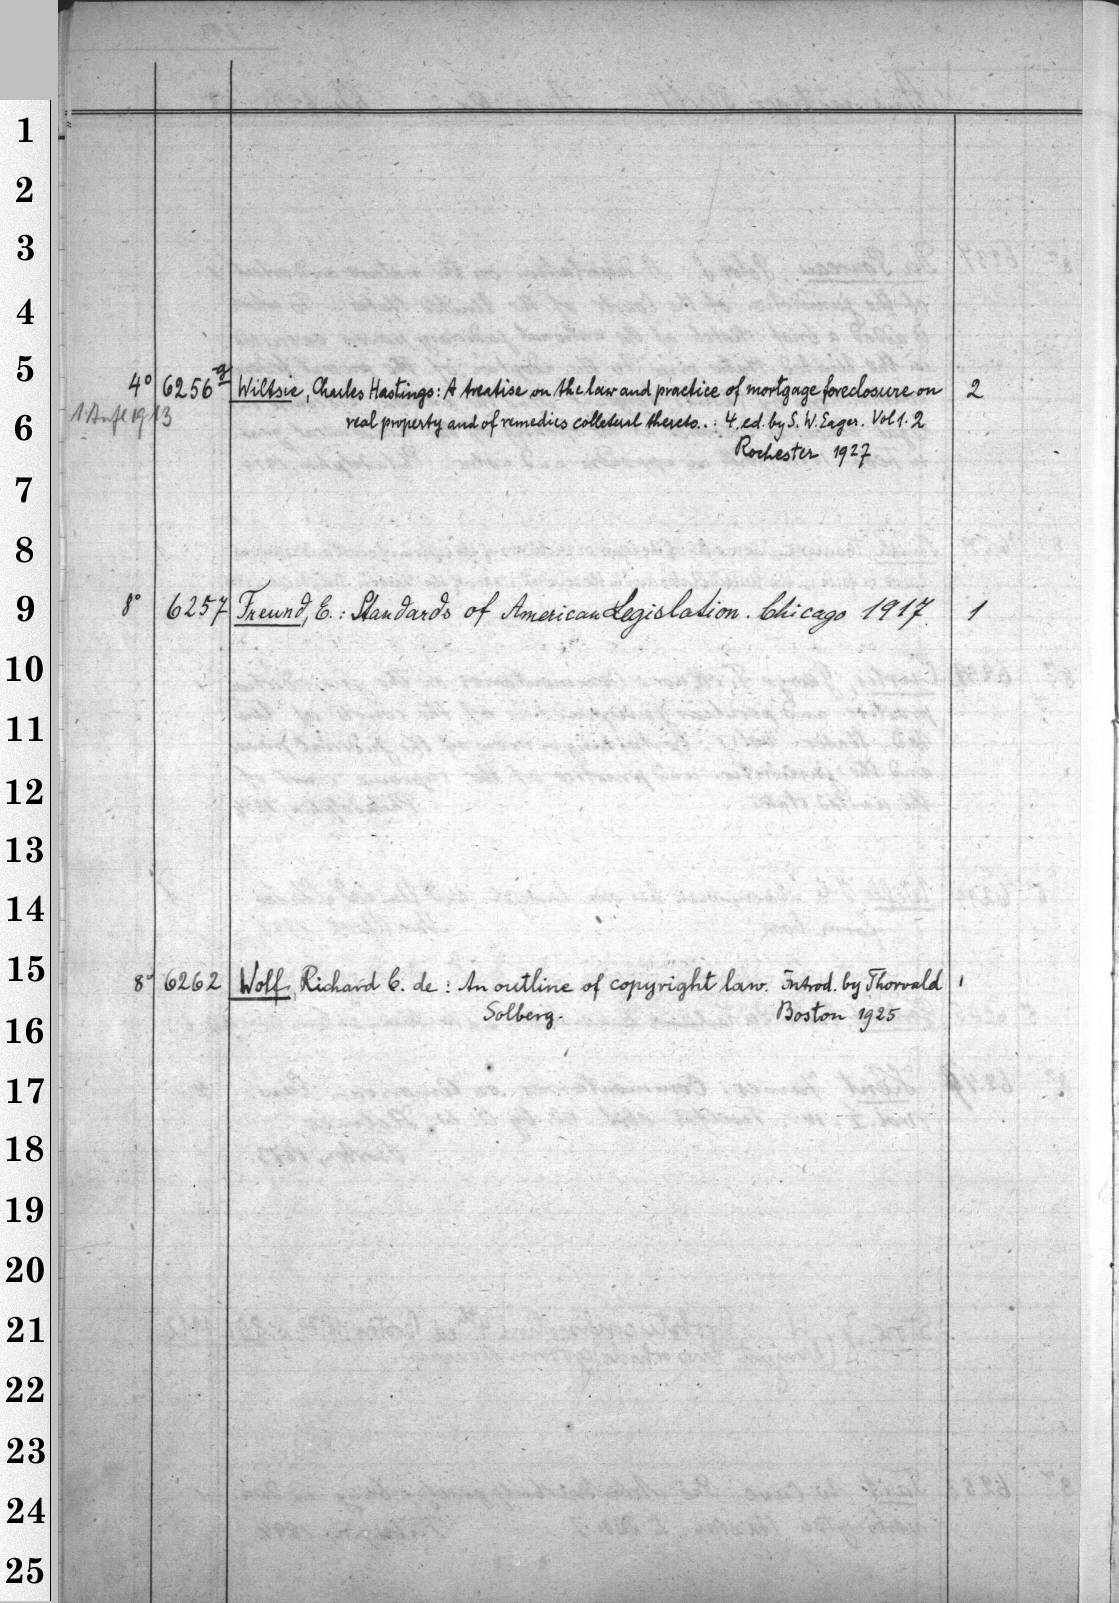 1
2
3
4
5
4° 6256g Wiltsie, Charles Hastings: A treatise on the law and practice of mortgage foreclosure on 2
6
real property and of remedies colleteral thereto..: 4. ed. by S. W. Eager. Vol 1. 2
Rochester 1927
7
8
9
8° 6257 Freund, E.: Standards of American Legislation. Chicago 1917. 1
10
11
12
13
14
15
8° 6262 Wolf, Richard C. de: An outline of copyright law. Introd. by Thorvald 1
16
Solberg. Boston 1925
17
18
19
20
21
22
23
24
25